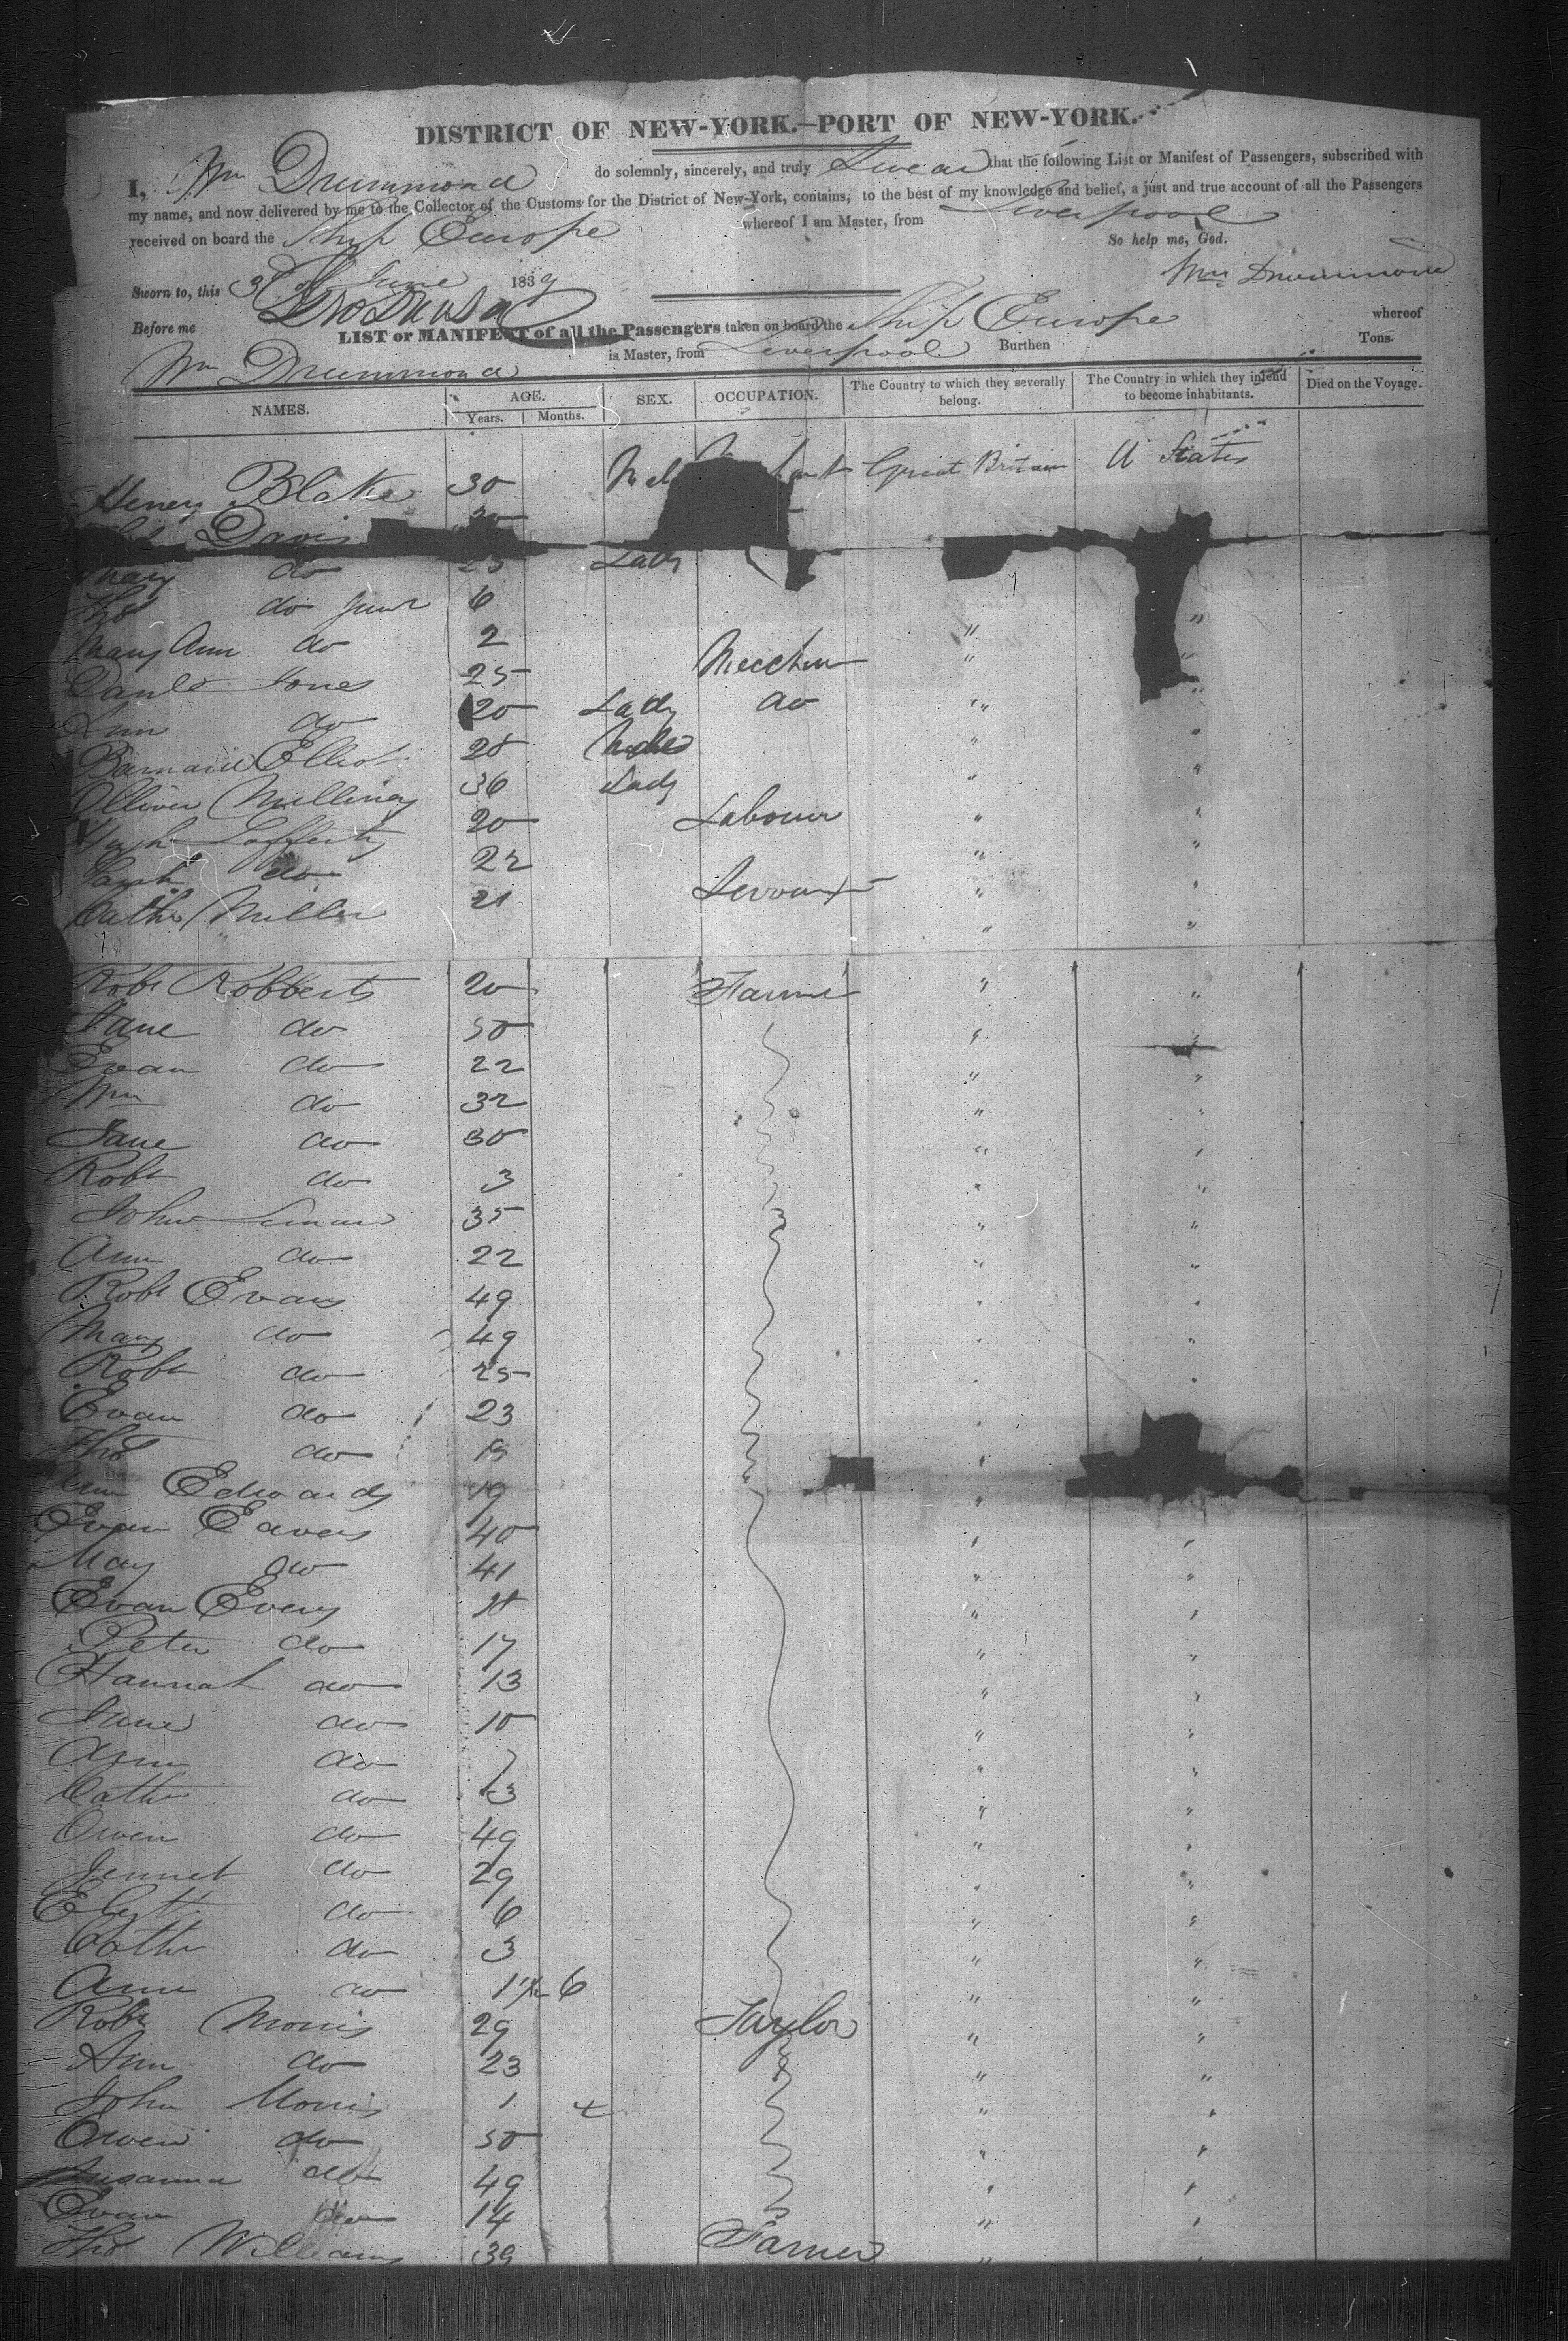 DISTRICT OF NEW-YORK.—PORT OF NEW-YORK.
I, Wm Drummond do solemnly, sincerely, and truly Swear that the following List or Manifest of Passengers, subscribed with
my name, and now delivered by me to the Collector of the Customs for the District of New-York, contains, to the best of my knowledge and belief, a just and true account of all the Passengers
received on board the Ship Europe whereof I am Master, from Liverpool
So help me, God.
Sworn to, this June 1839 Wm Drummond
Before me
LIST or MANIFEST of all the Passengers taken on board the Ship Europe whereof
Wm Drummond is Master, from Liverpool Burthen Tons.
NAMES. AGE. SEX. OCCUPATION. The Country to which they severally belong. The Country in which they intend to become inhabitants. Died on the Voyage.
Years. Months.
Henry Blake 30 Great Britain U States
Davis
Mary do 25 Lady
Thos do Junr 6
Mary Ann do 2 "
Jones 25 "
Ann do 20 Lady do "
Elliot 28 Male " "
36 Lady " "
Hugh Lafferty 20 Labourer " "
Sarah do 22 " "
Cathe Miller 21 Servant " "
Robt Robberts 20 " "
Jane do 50 " "
Evan do 22 " "
Wm do 32 " "
Jane do 30 " "
Robt do 3 " "
John 35 " "
Ann do 22 " "
Robt Evans 49 " "
Mary do 49 " "
Robt do 25 " "
Evan do 23 "
Thos do "
Ann Edwards 19 "
Evan 40 " "
Mary do 41 " "
Evan Evens " "
Peter do 17 " "
Hannah do 13 " "
Jane do 10 " "
Ann do 7 " "
Cathe do 13 " "
Owen do 49 " "
Jennet do 29 " "
Elizth do 6 " "
Cathe do 3 " "
Ann do 6 " "
Robt Morris 29 Taylor " "
Ann do 23 " "
John Morris 1 4 " "
Owen do 50 " "
Susanna do 49 " "
Evan do 14 " "
Thos Williams 39 Farmer "